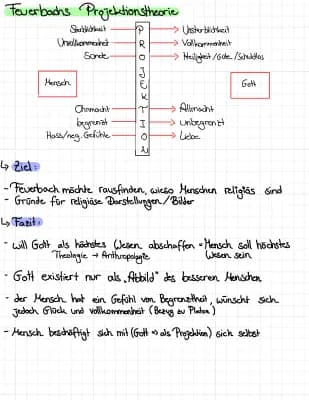 Feuerbachs Projektionstheorie
Sterblichkeit → Unsterblichkeit
Unvollkommenheit → Vollkommenheit
Sünde → Heiligkeit/Güte/Schuldlos
PROJEKTION
Mensch
Gott
Ohnmacht → Allmacht
begrenzt → Unbegrenzt
Hass/neg. Gefühle → Liebe
↳ Ziel:
- Feuerbach möchte rausfinden, wieso Menschen religiös sind
- Gründe für religiöse Darstellungen/Bilder
↳ Fazit:
- will Gott als höchstes Wesen abschaffen → Mensch soll höchstes
Theologie → Anthropologie Wesen sein
- Gott existiert nur als „Abbild" des besseren Menschen
- der Mensch hat ein Gefühl von Begrenztheit, wünscht sich
jedoch Glück und Vollkommenheit (Bezug zu Platon)
- Mensch beschäftigt sich mit (Gott => als Projektion) sich selbst